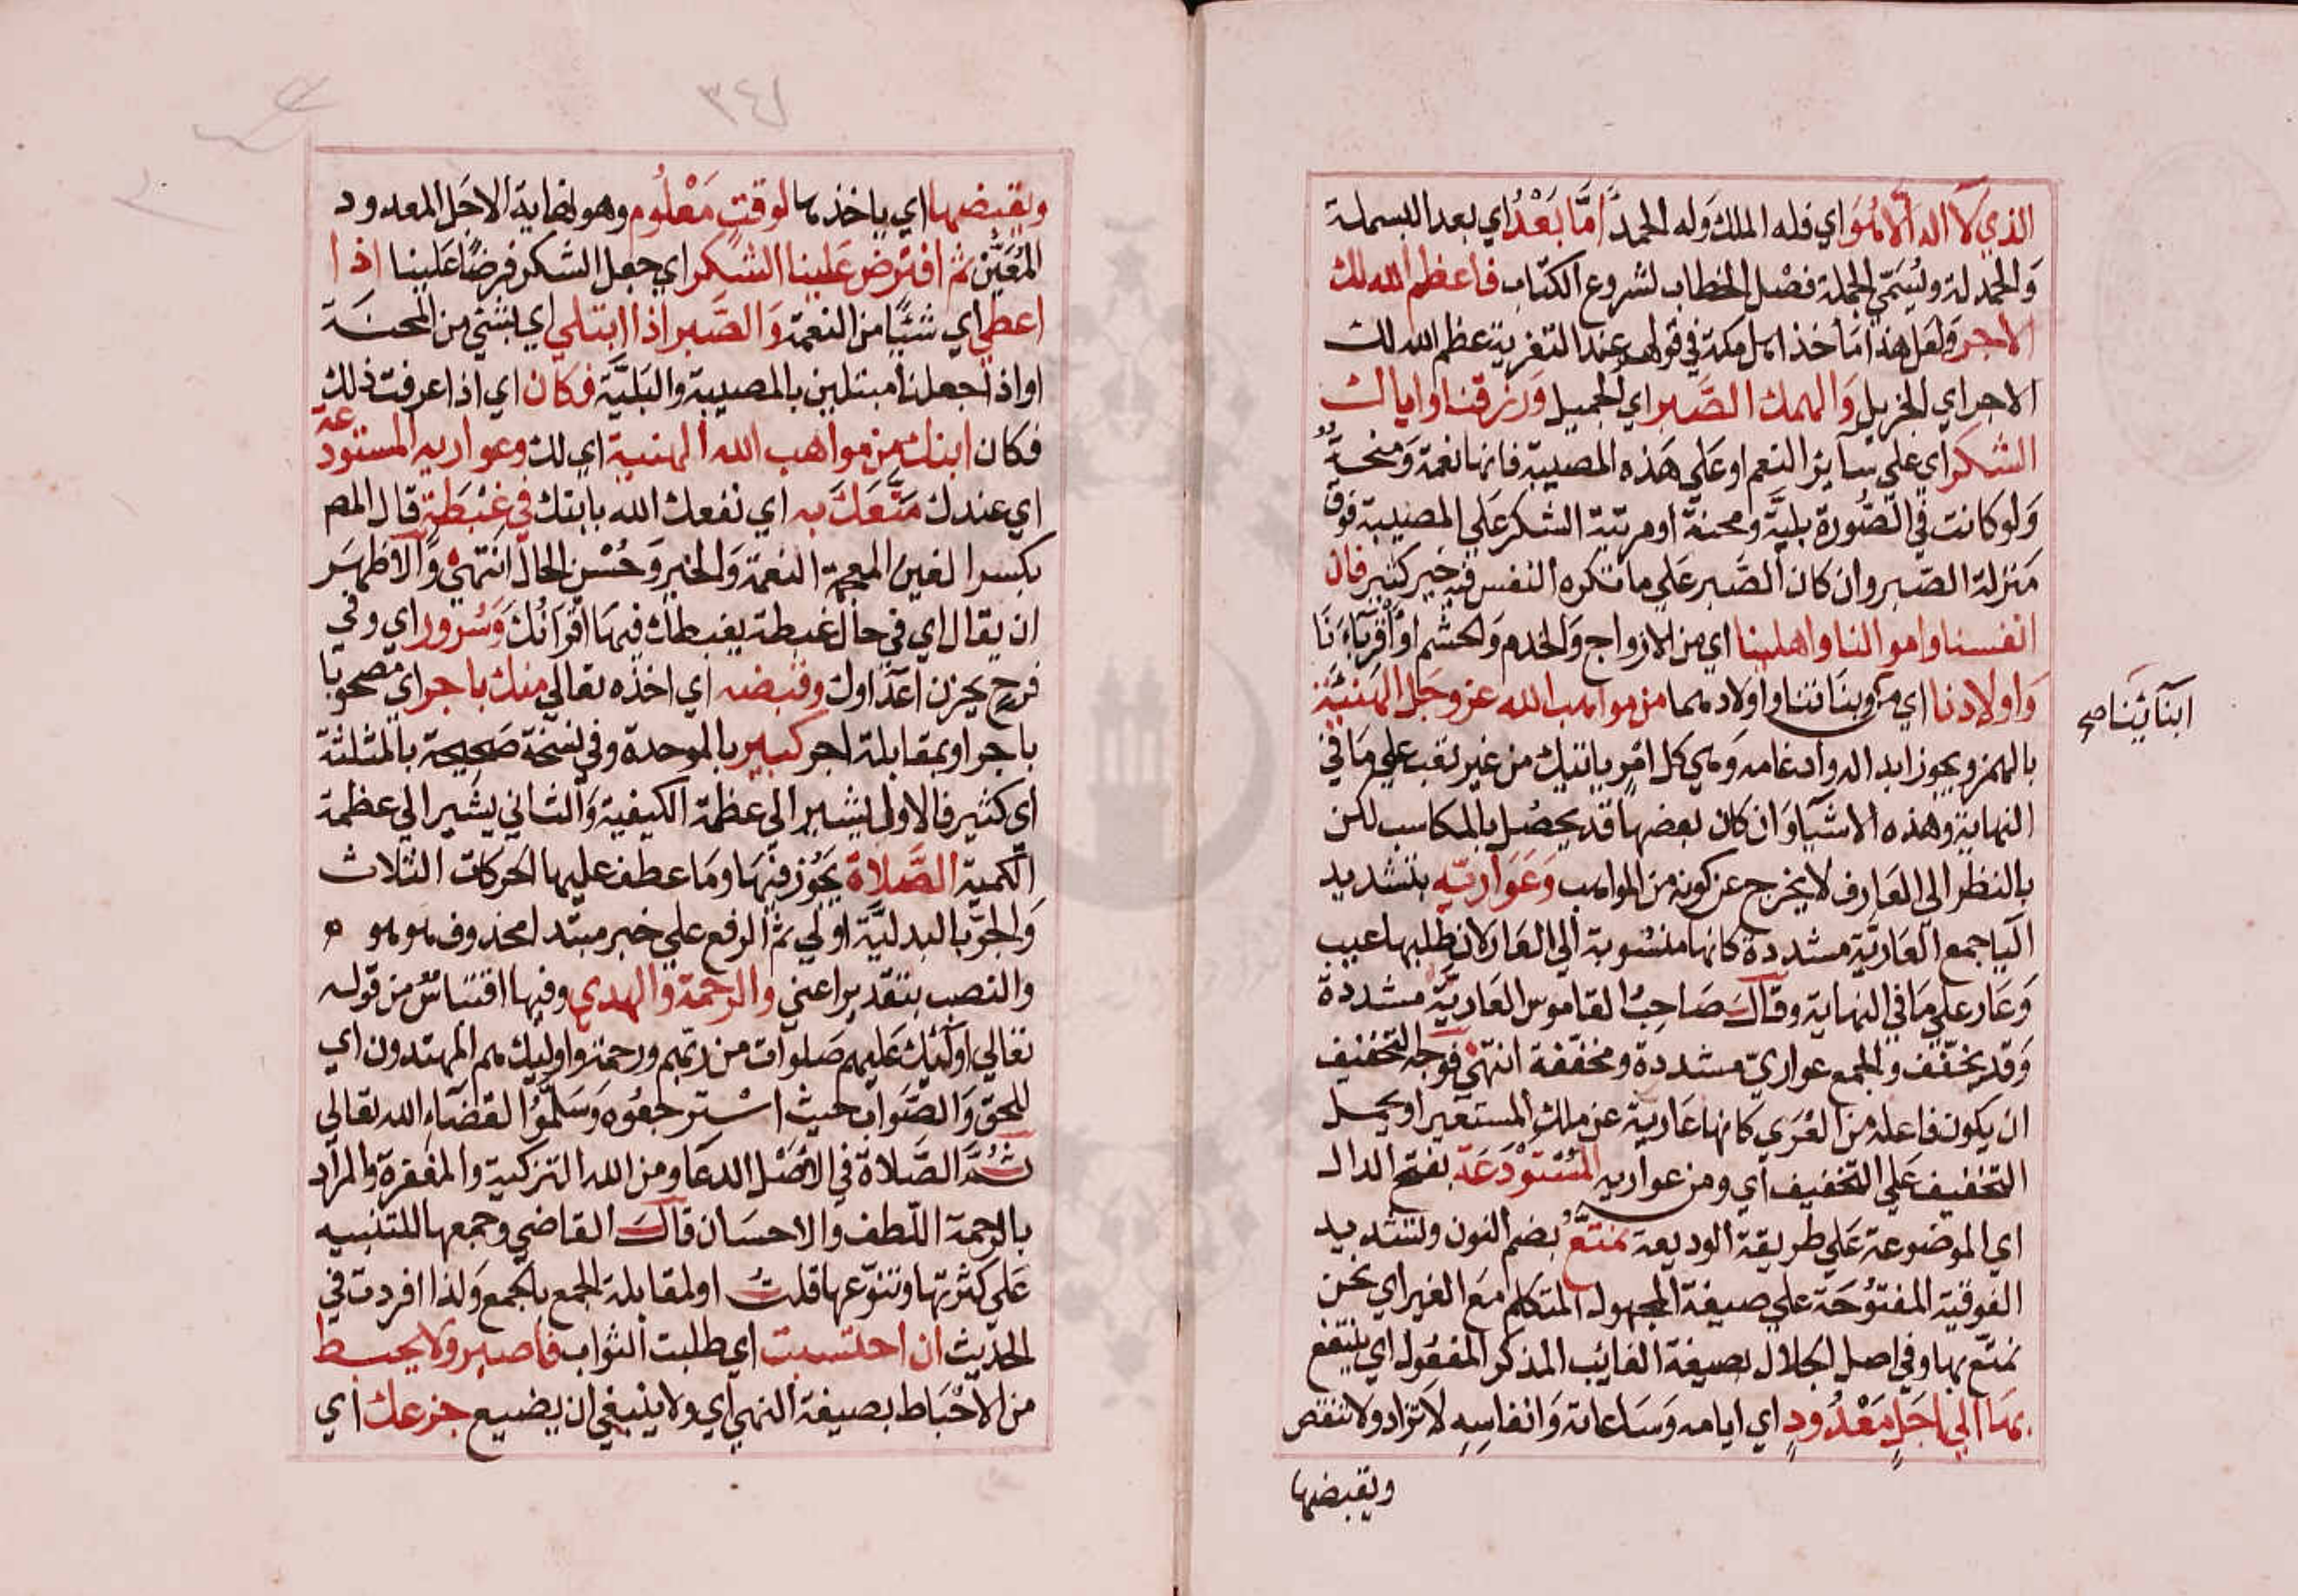 الذي لا اله الا هو اي فله الملك وله الحمد اما بعد اي بعد البسملة
والحمدلة ويسمي الجملة فصل الخطاب لشروع الكتاب فاعظم الله لك
الاجر ولعل هذا مأخذ اهل مكة في قولهم عند التعزية عظم الله لك
الاجر اي الجزيل والهمك الصبر اي الجميل ورزقنا واياك
الشكر اي علي سآير النعم او علي هذه المصيبة فانها نعمة ومنحة
ولو كانت في الصورة بلية ومحنة او مرتبة الشكر علي المصيبة فوق
منزلة الصبر وان كان الصبر علي ما تكره النفس فيه خير كثير فان
انفسنا واموالنا واهلينا اي من الازواج والخدم والحشم او اقربآءنا
واولادنا اي من وبناتنا واولادهما من مواهب الله عز وجل الهنيئة
ابنآئنا صح
بالهمز ويجوز ابداله وادغامه وهي كل امر ياتيك من غير تعب علي ما في
النهاية وهذه الاشيآ وان كان بعضها قد يحصل بالمكاسب لكن
بالنظر الي العارف لا يخرج عن كونه من المواهب وعواريه بتشديد
اليا جمع العارية مشددة كانها منسوبة الي العار لان طلبها عيب
وعار علي ما في النهاية وقال صاحب القاموس العارية مشددة
وقد يخفف والجمع عواري مشددة ومخففة انتهي فوجه التخفيف
ان يكون فاعلة من العري كانها عارية عن ملك المستعير او يحمل
التخفيف علي التخفيف اي ومن عواريه المستودعة بفتح الدال
اي الموضوعة علي طريقة الوديعة نمتع بضم النون وتشديد
الفوقية المفتوحة علي صيغة المجهول المتكلم مع الغير اي نحن
نمتع بها وفي اصل الجلال بصيغة الغايب المذكر المفعول اي ينتفع
بها الي اجل معدود اي ايامه وساعاته وانفاسه لا تزاد ولا تنقص
ويقبضها
٣٤٨
ويقبضها اي ياخذها لوقت معلوم وهو نهاية الاجل المعدود
المعين ثم افترض علينا الشكر اي جعل الشكر فرضا علينا اذا
اعطي اي شيئا من النعمة والصبر اذا ابتلي اي بشئ من المحنة
او اذا جعلنا مبتلين بالمصيبة والبلية فكان اي اذا عرفت ذلك
فكان ابنك من مواهب الله الهنية اي لك وعواريه المستودعة
اي عندك متعك به اي نفعك الله بابنك في غبطة قال المص
بكسر الغين المعجمة النعمة والخير وحسن الحال انتهي والاظهر
ان يقال اي في حال غبطة يغبطك فيها اقرانك وسرور اي وفي
فرح يحزن اعدآوك وقبضه اي اخذه تعالي منك باجر اي مصحوبا
باجر او بمقابلة اجر كبير بالموحدة وفي نسخة صحيحة بالمثلثة
اي كثير فالاول يشير الي عظمة الكيفية والثاني يشير الي عظمة
الكمية الصلاة يجوز فيها وما عطف عليها الحركات الثلاث
والجر بالبدلية اولي ثم الرفع علي خبر مبتدا محذوف هو هو ٥
والنصب بتقدير اعني والرحمة والهدي وفيها اقتباس من قوله
تعالي اولئك عليهم صلوات من ربهم ورحمة واوليك هم المهتدون اي
للحق والصواب حيث استرجعوه وسلموا لقضآء الله تعالي
ثم الصلاة في الاصل الدعا ومن الله التزكية والمغفرة والمراد
بالرحمة اللطف والاحسان قال القاضي وجمعها للتنبيه
علي كثرتها وتنوعها قلت او لمقابلة الجمع بالجمع ولذا افردت في
الحديث ان احتسبت اي طلبت الثواب فاصبر ولا يحبط
من الاحباط بصيغة النهي اي ولا ينبغي ان يضيع جزعك اي